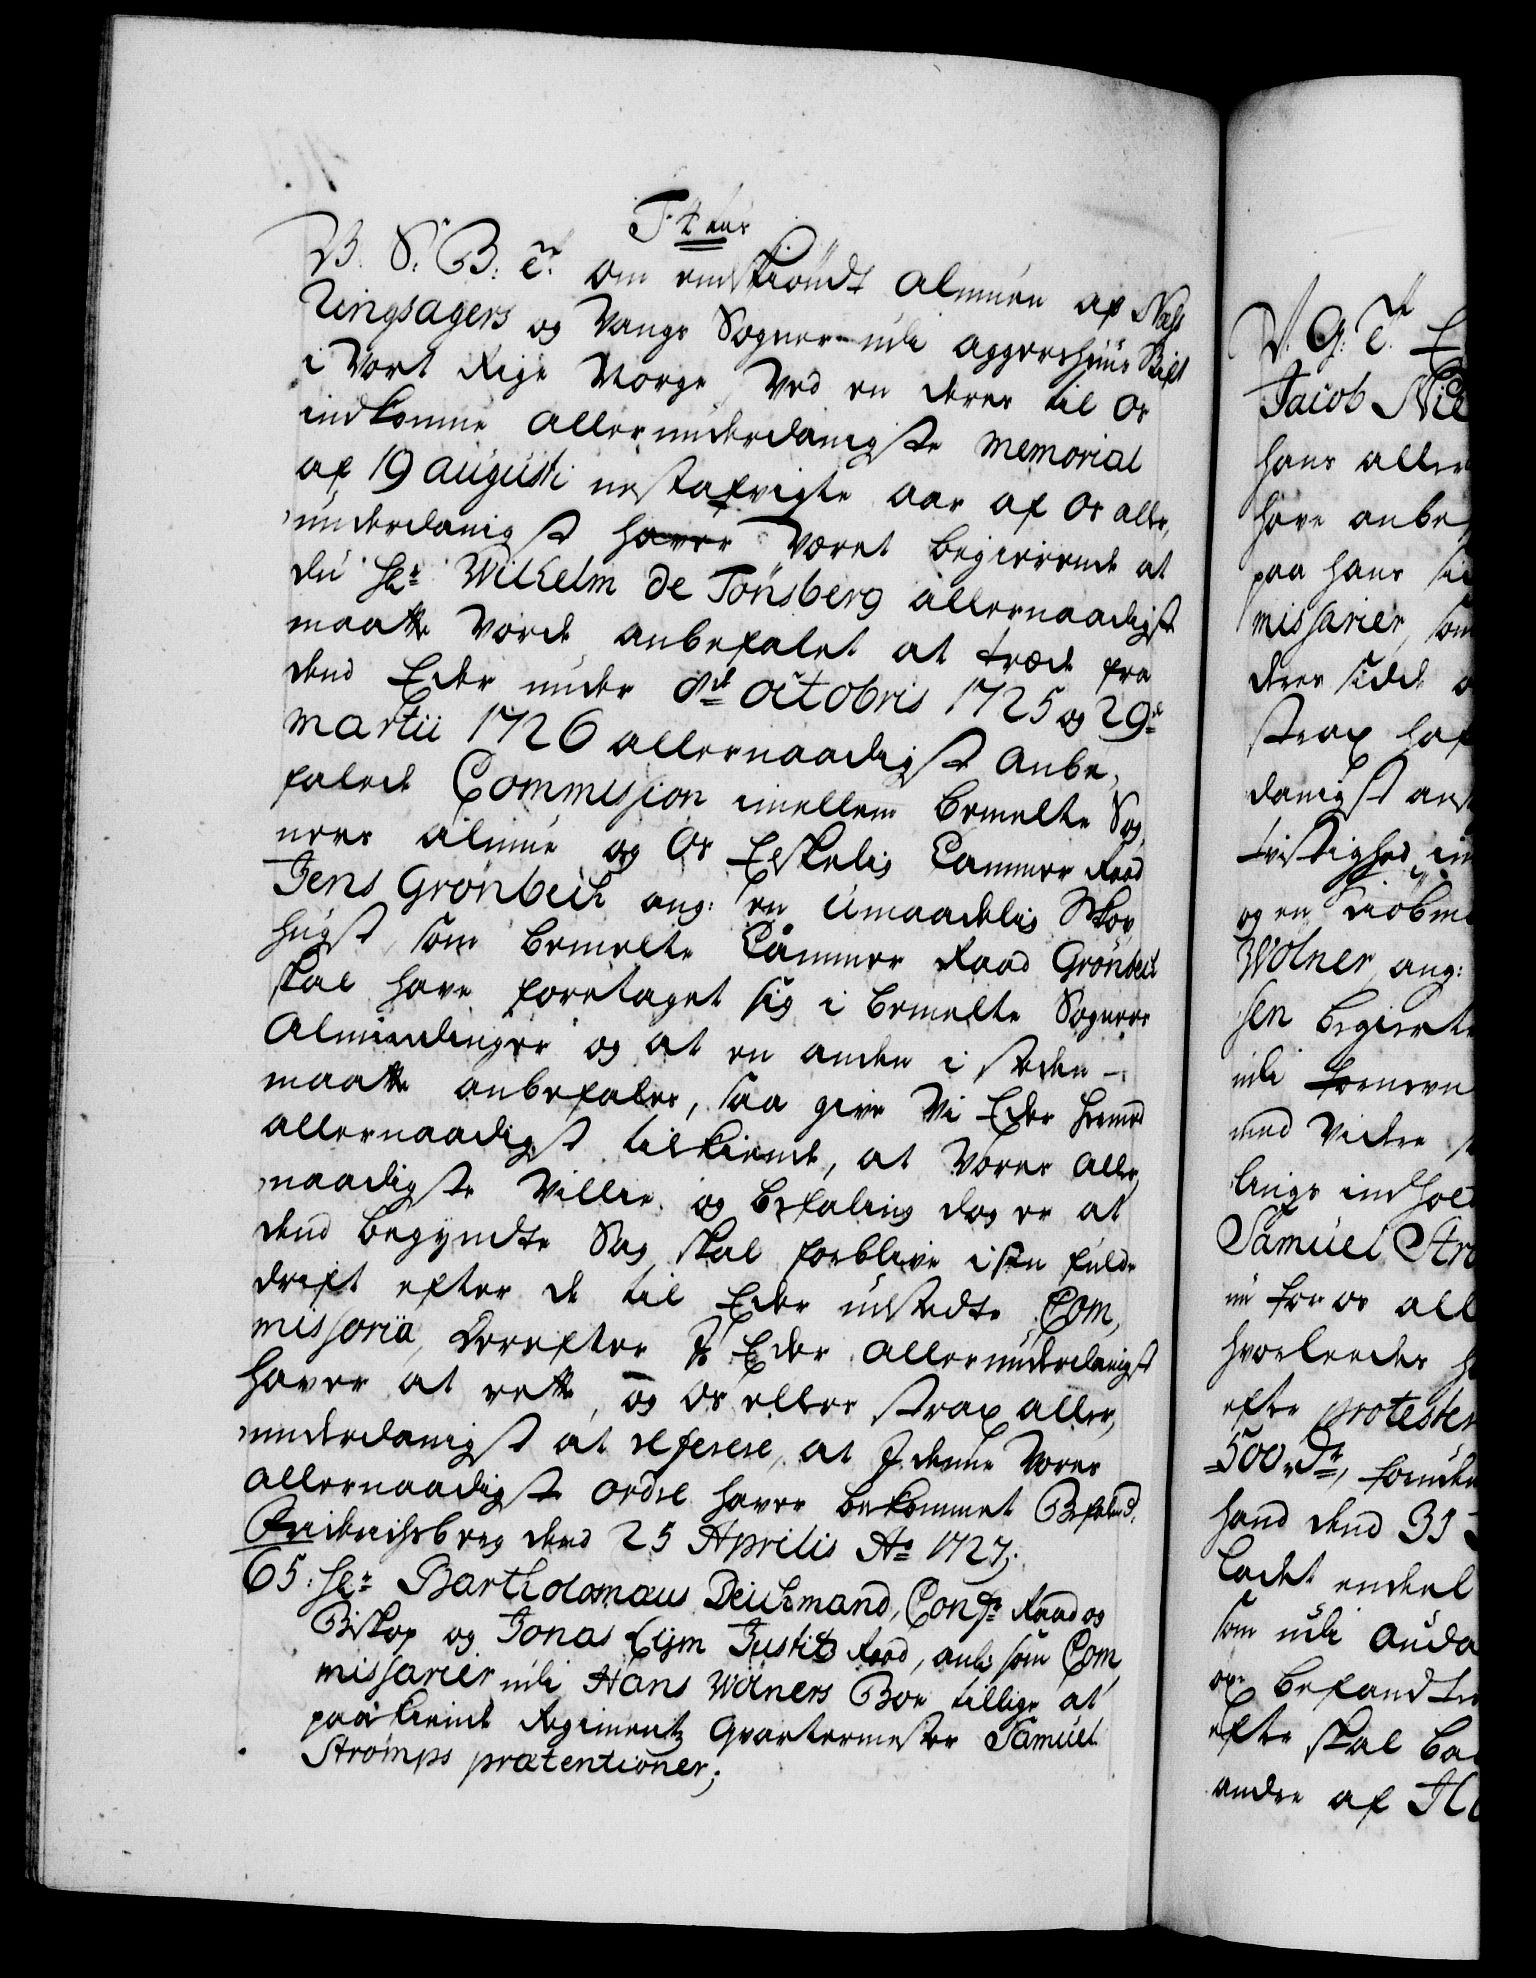 V. S. B. T. Om endskiöndt Almuen af Næs
Ringsagers og Vangs Sogner udi Aggershuus Stift
i Vort Rige Norge, Ved en deres til Os
indkomne allerunderdanigste Memorial
af 19 Augusti nestafvigte aar af Os aller,
underdanigst haver Været begierende at
du Hr. Wilhelm de Tonsberg allernaadigst
maatte Vorde anbefalet at træde fra
dend Eder under octobris 1725 og 29de
Martii 1726 allernaadigst Anbe,
falede Commission imellem bemelte Sog,
ners Almue og Os Elskelig Cammer Raad
Jens Gronbech ang: en Umaadelig Skov
hugst, som bemelte Cammer Raad Gronbech
skal have foretaget sig i bemelte Sogners
Almindinger og at en anden i steden
maatte anbefales, saa give Vi Eder hermed
allernaadigst tilkiende, at Vores Aller,
naadigste Villie og befaling dog er at
dend begyndte Sag skal forblive i sin fulde
drift efter de til Eder udstedte Com,
missoria, Derefter I Eder allerunderdanigst
haver at rette, og Os ellers strax aller,
underdanigst at referere, at I denne Vores
allernaadigste ordre haver bekommet Befalend.
Friderichsberg dend 25 Aprilis Ao 1727;
65: Hr. Bartholomæus Deichmand, Conf. Raad og
Biskop og Jonas Lijm Justitz Raad, anb: som Com,
missarier udi Hans Wölners Boe tillige at
paakiende Regiments Qvartermester Samuel
Stromps prætentioner;
V. G. T. E
Jacob Nie
hans aller
have anbe
paa hans
missarier, som
deres sidde
strax haf
danigst
tvistighed, im
og en Kiöbm
Wölner, ang:
sen begierte
udi fornevn
med Videre
lings indhold
Samuel Stro
nu for os all
hvorledes
efter protester
500 Dr, foruden
haud dend 31
ladet endeel
som udi Auda
befandt
efter skal ba
andre af H